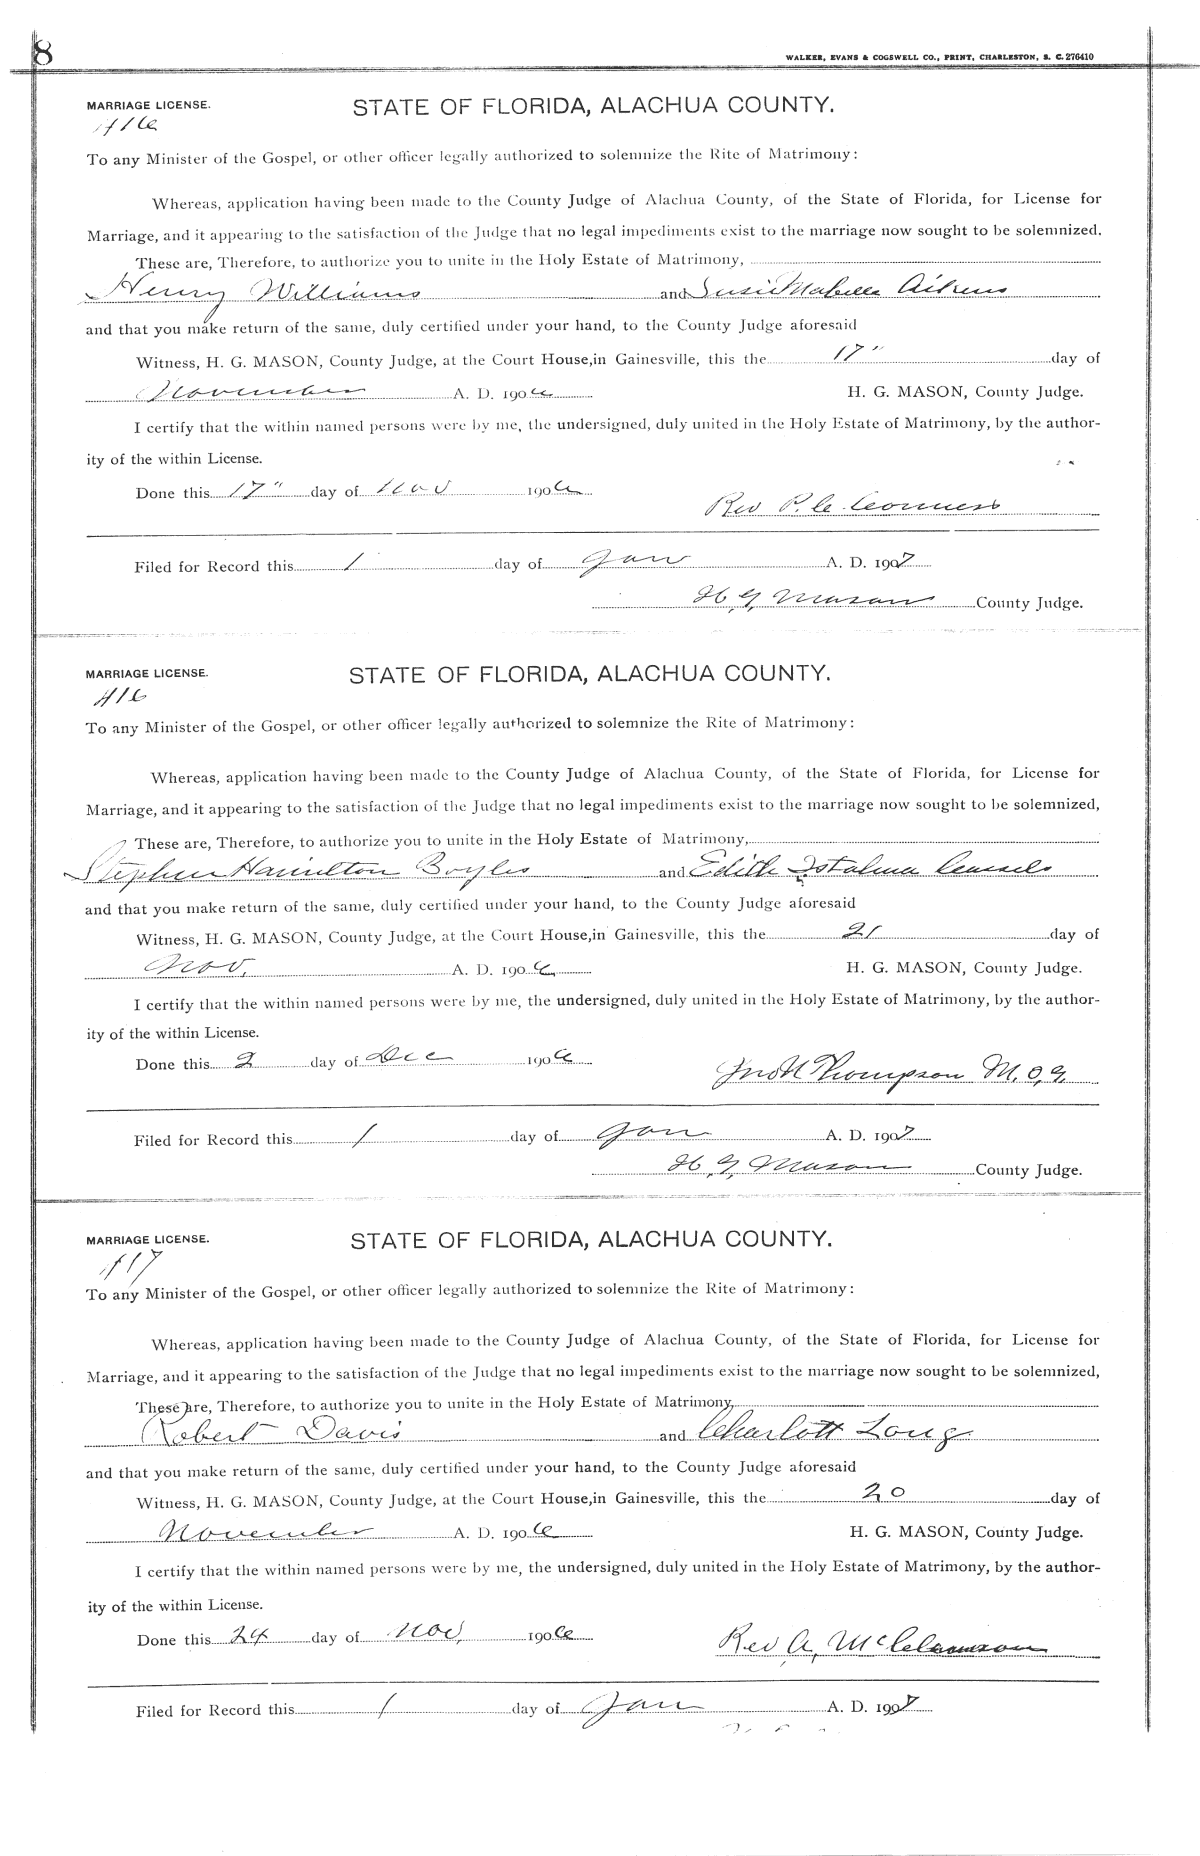 8
WALKER, EVANS & COGSWELL CO., PRINT, CHARLESTON, S. C. 276410
MARRIAGE LICENSE. STATE OF FLORIDA, ALACHUA COUNTY.
416
To any Minister of the Gospel, or other officer legally authorized to solemnize the Rite of Matrimony:
Whereas, application having been made to the County Judge of Alachua County, of the State of Florida, for License for
Marriage, and it appearing to the satisfaction of the Judge that no legal impediments exist to the marriage now sought to be solemnized.
These are, Therefore, to authorize you to unite in the Holy Estate of Matrimony,
Henry Williams and Susie Mabelle Aikens
and that you make return of the same, duly certified under your hand, to the County Judge aforesaid
Witness, H. G. MASON, County Judge, at the Court House, in Gainesville, this the 17" day of
November A. D. 1906 H. G. MASON, County Judge.
I certify that the within named persons were by me, the undersigned, duly united in the Holy Estate of Matrimony, by the author-
ity of the within License.
Done this 17" day of Nov 1906
Rev P. C.
Filed for Record this 1 day of Jan A. D. 1907
H. G. Mason County Judge.
MARRIAGE LICENSE. STATE OF FLORIDA, ALACHUA COUNTY.
416
To any Minister of the Gospel, or other officer legally authorized to solemnize the Rite of Matrimony:
Whereas, application having been made to the County Judge of Alachua County, of the State of Florida, for License for
Marriage, and it appearing to the satisfaction of the Judge that no legal impediments exist to the marriage now sought to be solemnized,
These are, Therefore, to authorize you to unite in the Holy Estate of Matrimony,
Stephen Hamilton Boyles and Edith
and that you make return of the same, duly certified under your hand, to the County Judge aforesaid
Witness, H. G. MASON, County Judge, at the Court House, in Gainesville, this the 21 day of
Nov. A. D. 1906 H. G. MASON, County Judge.
I certify that the within named persons were by me, the undersigned, duly united in the Holy Estate of Matrimony, by the author-
ity of the within License.
Done this 2 day of Dec 1906
Jno H Thompson M. O. G.
Filed for Record this 1 day of Jan A. D. 1907
H. G. Mason County Judge.
MARRIAGE LICENSE. STATE OF FLORIDA, ALACHUA COUNTY.
417
To any Minister of the Gospel, or other officer legally authorized to solemnize the Rite of Matrimony:
Whereas, application having been made to the County Judge of Alachua County, of the State of Florida, for License for
Marriage, and it appearing to the satisfaction of the Judge that no legal impediments exist to the marriage now sought to be solemnized,
These are, Therefore, to authorize you to unite in the Holy Estate of Matrimony,
Robert Davis and Charlott Long
and that you make return of the same, duly certified under your hand, to the County Judge aforesaid
Witness, H. G. MASON, County Judge, at the Court House, in Gainesville, this the 20 day of
November A. D. 1906 H. G. MASON, County Judge.
I certify that the within named persons were by me, the undersigned, duly united in the Holy Estate of Matrimony, by the author-
ity of the within License.
Done this 24 day of Nov, 1906
Rev A,
Filed for Record this 1 day of Jan A. D. 1907